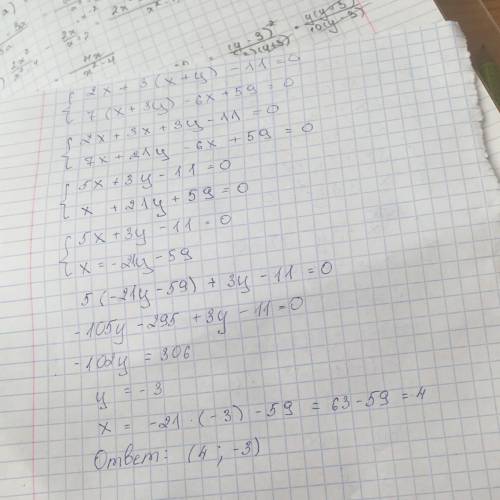 { 2x + 3(x+y) - 11 = 0
7(x+3y) - 6x + 59 = 0
{ 2x + 3x + 3y - 11 = 0
7x + 21y - 6x + 59 = 0
{ 5x + 3y - 11 = 0
x + 21y + 59 = 0
{ 5x + 3y - 11 = 0
x = -21y - 59
5(-21y - 59) + 3y - 11 = 0
-105y - 295 + 3y - 11 = 0
-102y = 306
y = -3
x = -21 · (-3) - 59 = 63 - 59 = 4
Ответ: (4 ; -3)